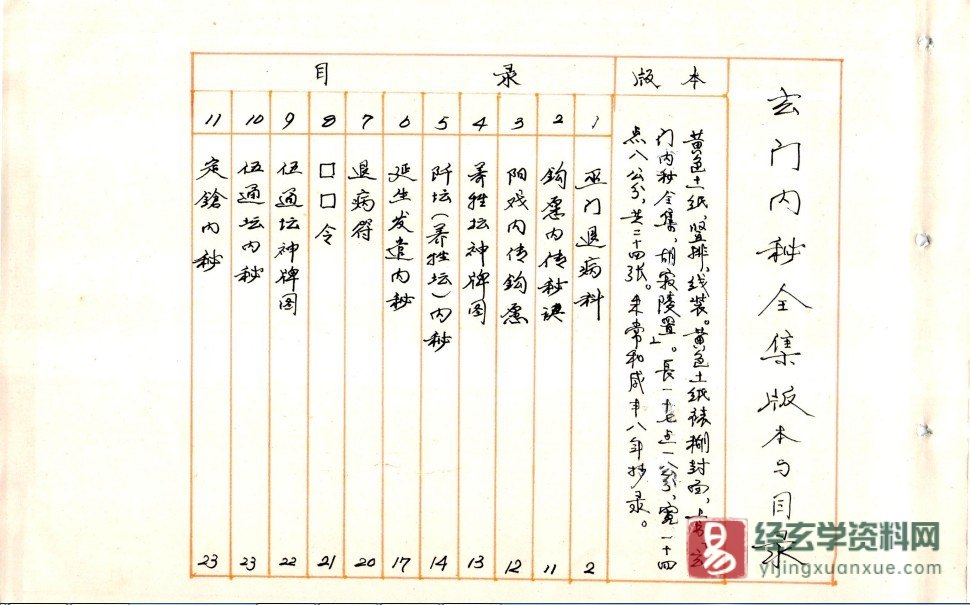 玄门内秘全集版本与目录
版本
黄色土纸,竖排,线装。黄色土纸裱糊封面,上书“玄
门内秘全集,胡寂陵置”。長一十七点一公分,宽一十四
点八公分,共二十四张。朱常和咸丰八年抄录。
目录
1 巫门退病科 2
2 钩愿内传秘诀 11
3 阳戏内传钩愿 12
4 养牲坛神牌图 13
5 阡坛(养牲坛)内秘 14
6 延生发遣内秘 17
7 退病符 20
8 口口令 21
9 伍通坛神牌图 22
10 伍通坛内秘 23
11 定鎗内秘 23
易
经玄学资料网
yijingxuanxue.com